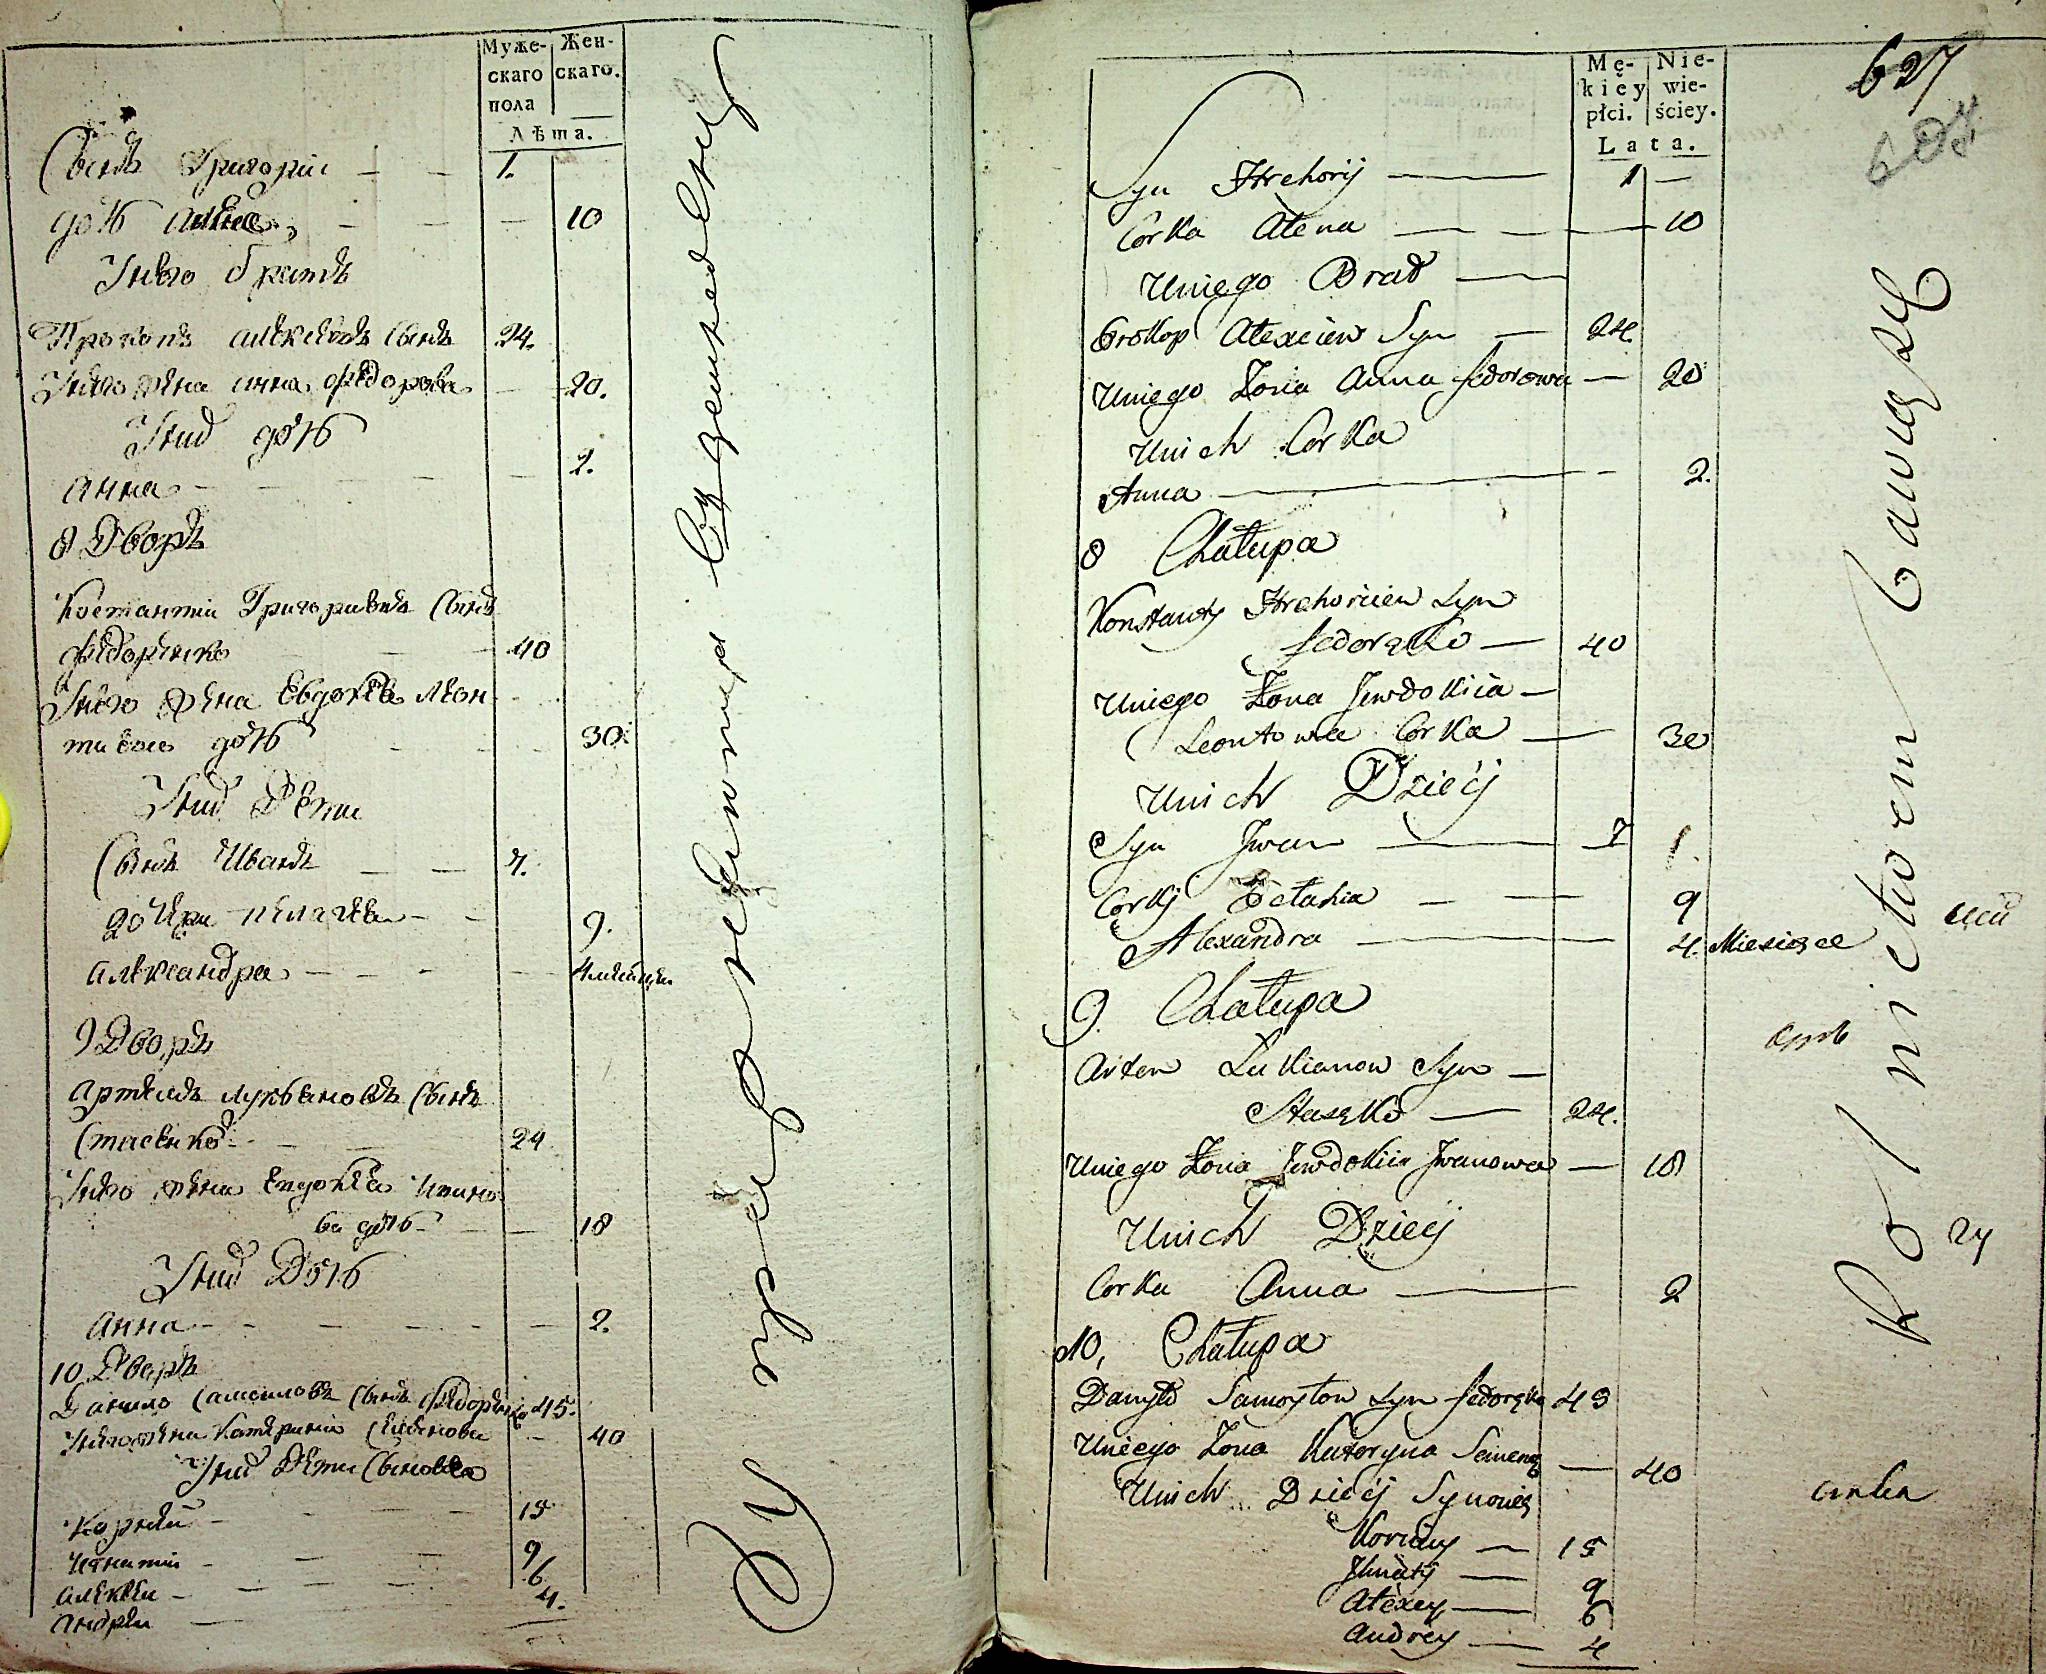 Муже-
скаго
пола
Жен-
скаго.
Лѣта.
Сынъ Григорій 1.
дочь 10
У него братъ
Прокопъ Алексѣевъ сынъ 24.
У него жена Анна Федорова 20.
У них дочь
Анна 2.
8 Дворъ
Костантій Григориевъ сынъ
Федоренко 40
У него жена Евдокѣя Леон-
тиева дочь 30.
У них Дѣти
Сынъ Иванъ 7.
дочери Пелагѣя 9.
Александра 4 месяца
9 Дворъ
Артемъ Лукьяновъ сынъ
Стасенко 24
У него жена Евдокѣя Ивано-
ва дочь 18
У них Дочь
Анна 2.
10 Дворъ
Данило Самойловъ сынъ Федоренко 45.
У него жена Катерина Семенова 40
У них Дѣти Сыновья
Корнѣй 15
Игнатій 9
Алексѣй 6
Андрѣй 4.
Mę-
kiéy
płci.
Nie-
wie-
ściey.
Lata.
627
Syn Hrehorij 1
Corka Alena 10
U niego Brat
Prokop Alexiew Syn 24.
U niego Żona Anna Fedorowa 20
U nich Corka
Anna 2.
8 Chałupa
Konstanty Hrehoriew Syn
Fedoręko 40
U niego Żona Jewdokiia
Leontowa Corka 30
U nich Dzieći
Syn Jwan 7
Corkj Pelahia 9
Alexandra 4. Miesiące
9. Chałupa
Artem Lukianow Syn
Stasęko 24.
U niego Żona Jewdokiia Jwanowa 18
U nich Dzieći
Corka Anna 2
10, Chałupa
Danyło Samoyłow Syn Fedoręko 45
U niego Żona Katoryna Semeno 40
U nich Dzieći Synowie
Korniey 15
Jhnatij 9
Alexey 6
Andrey 4